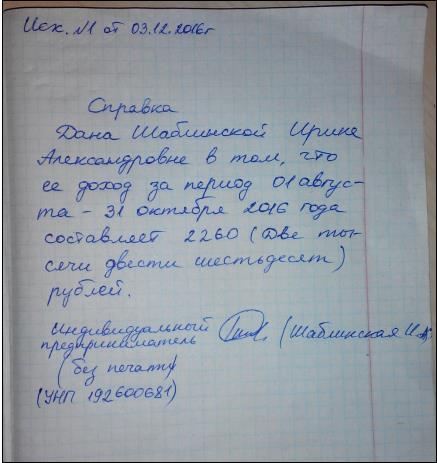 Исх. №1 от 03.12.2016г
Справка
Дана Шаблинской Ирине
Александровне в том, что
ее доход за период 01 авгус-
та - 31 октября 2016 года
составляет 2260 (Две ты-
сячи двести шестьдесят)
рублей.
Индивидуальный (Шаблинская И.А.)
предприниматель
(без печати)
(УНП 192600681)